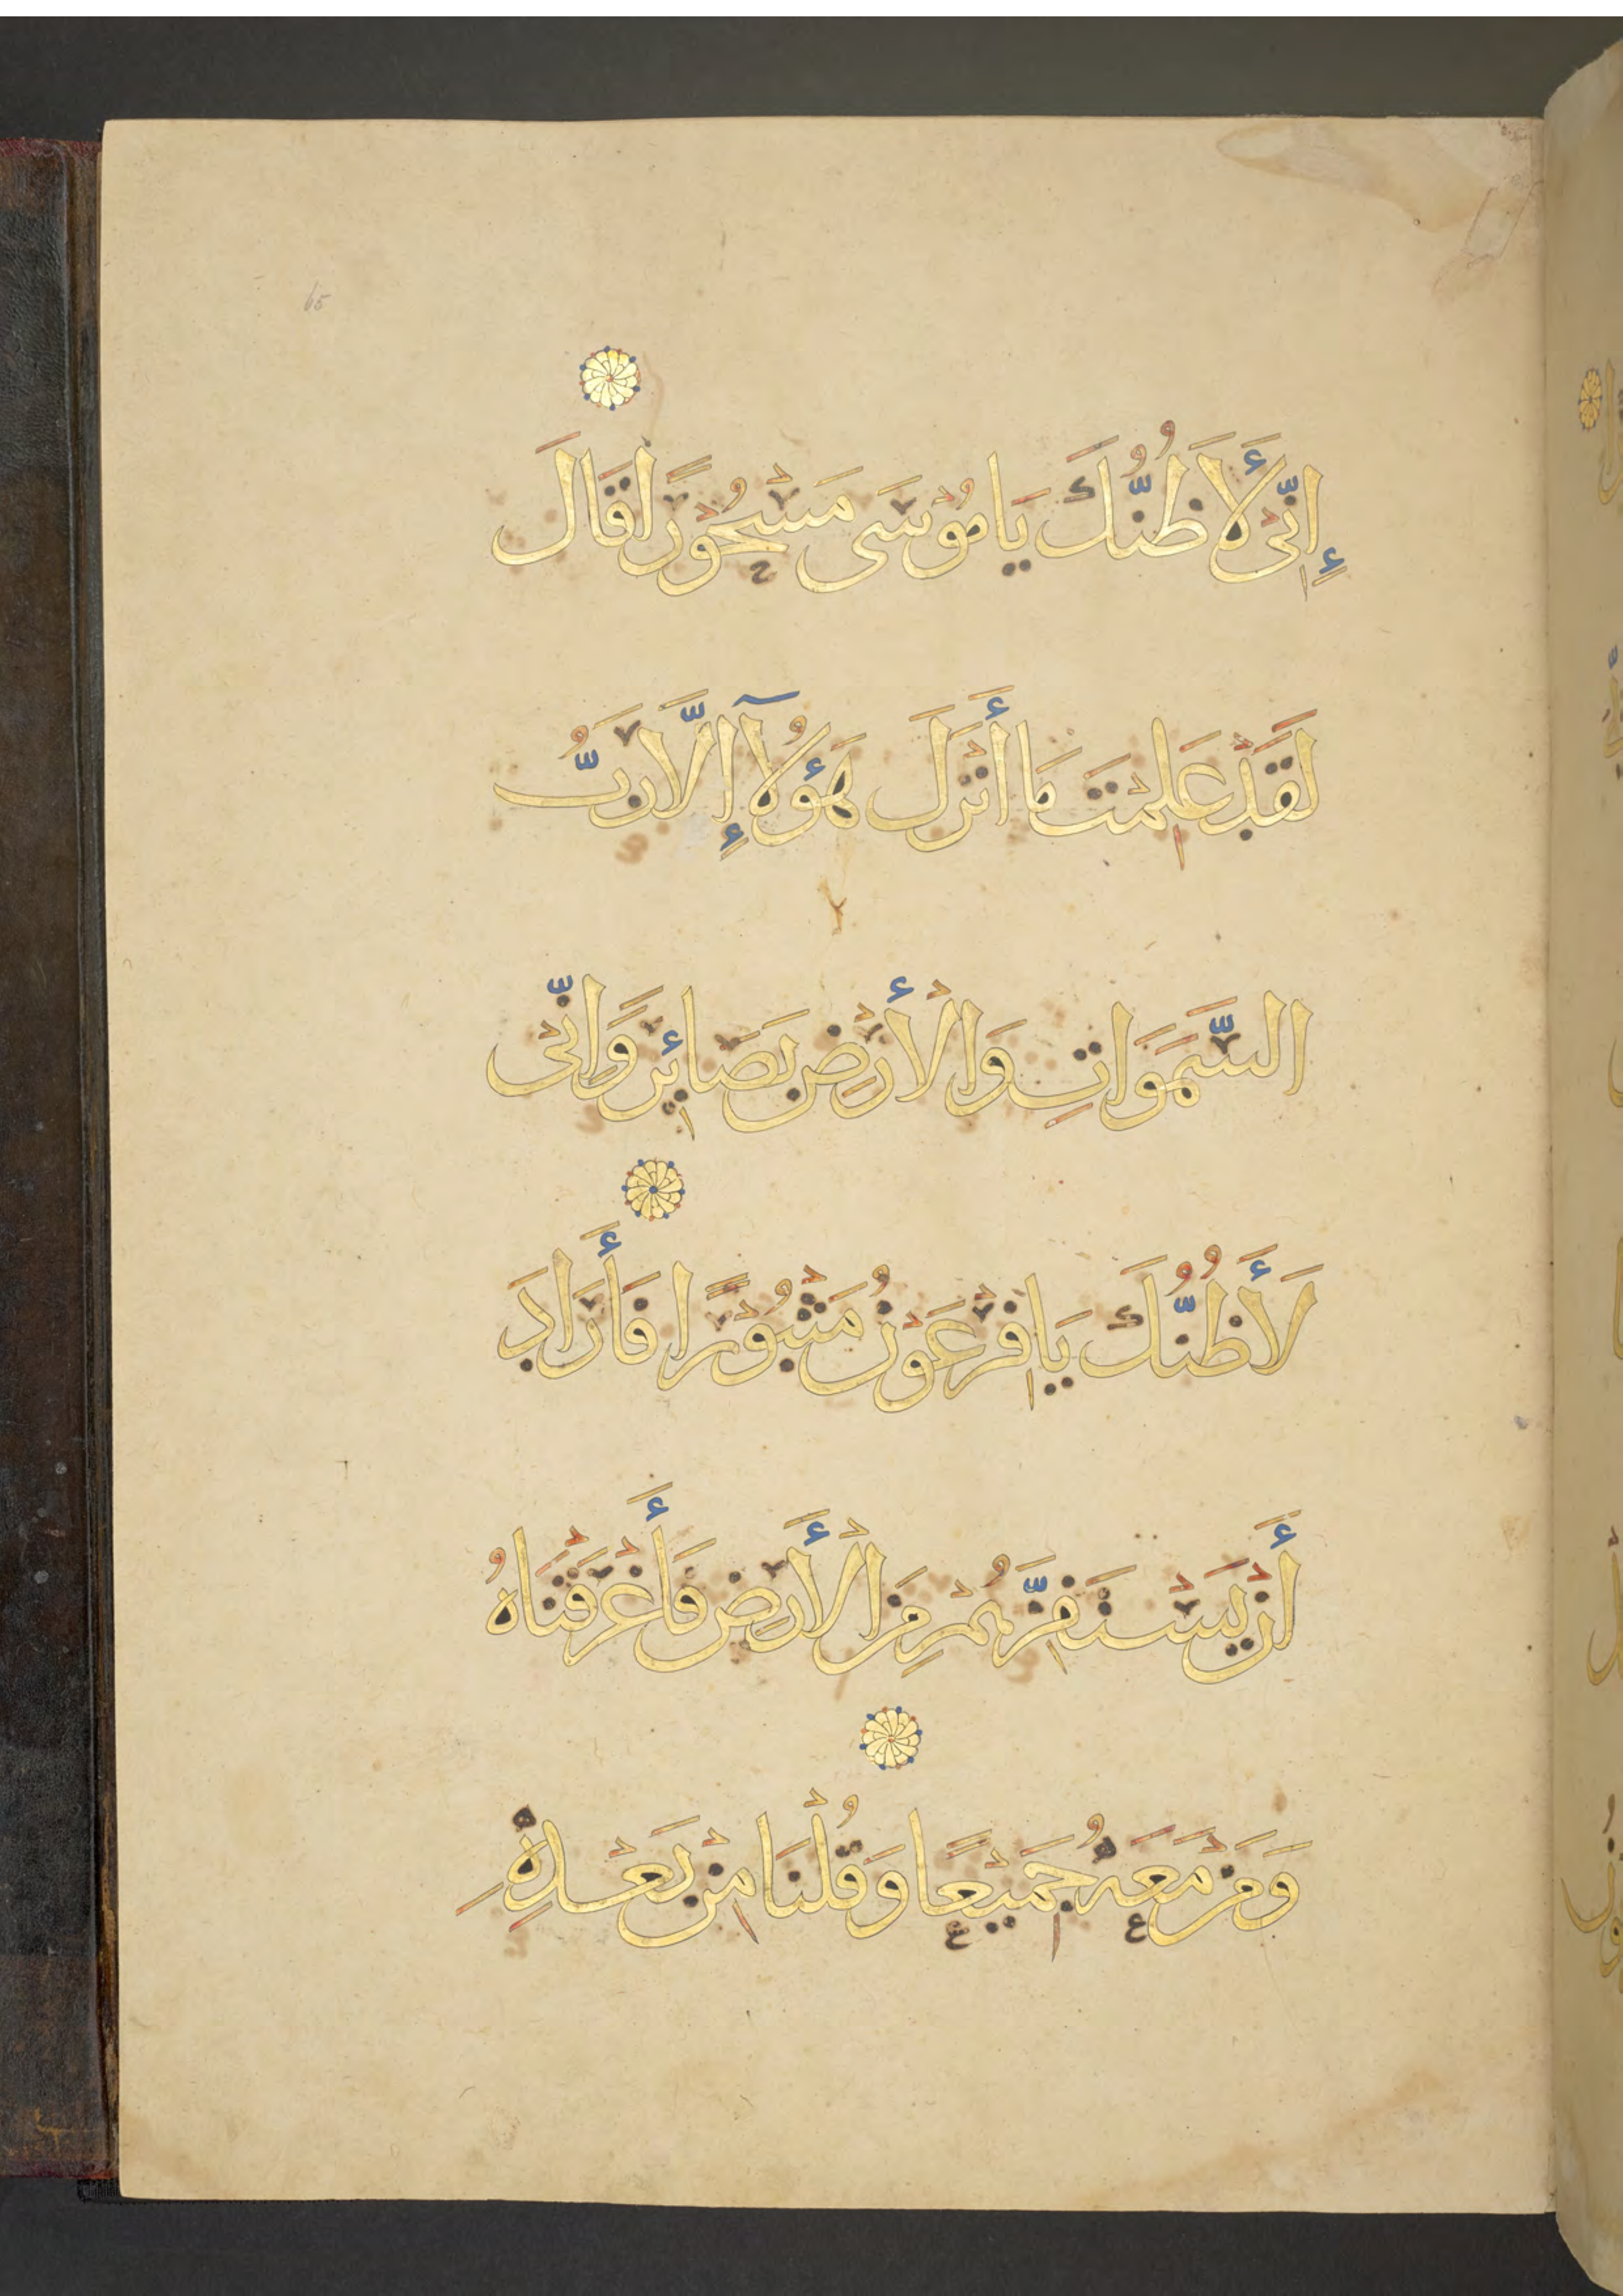 65
إِنِّي لَأَظُنُّكَ يَا مُوْسَى مَسْحُوْرًا قَالَ
لَقَدْ عَلِمْتَ مَا أَنْزَلَ هَؤُلَآ إِلَّا رَبُّ
السَّمَوَاتِ وَالْأَرْضِ بَصَائِرَ وَإِنِّي
لَأَظُنُّكَ يَا فِرْعَوْنُ مَثْبُوْرًا فَأَرَادَ
أَنْ يَسْتَفِزَّهُمْ مِنَ الْأَرْضِ فَأَغْرَقْنَاهُ
وَمَنْ مَعَهُ جَمِيْعًا وَقُلْنَا مِنْ بَعْدِهِ